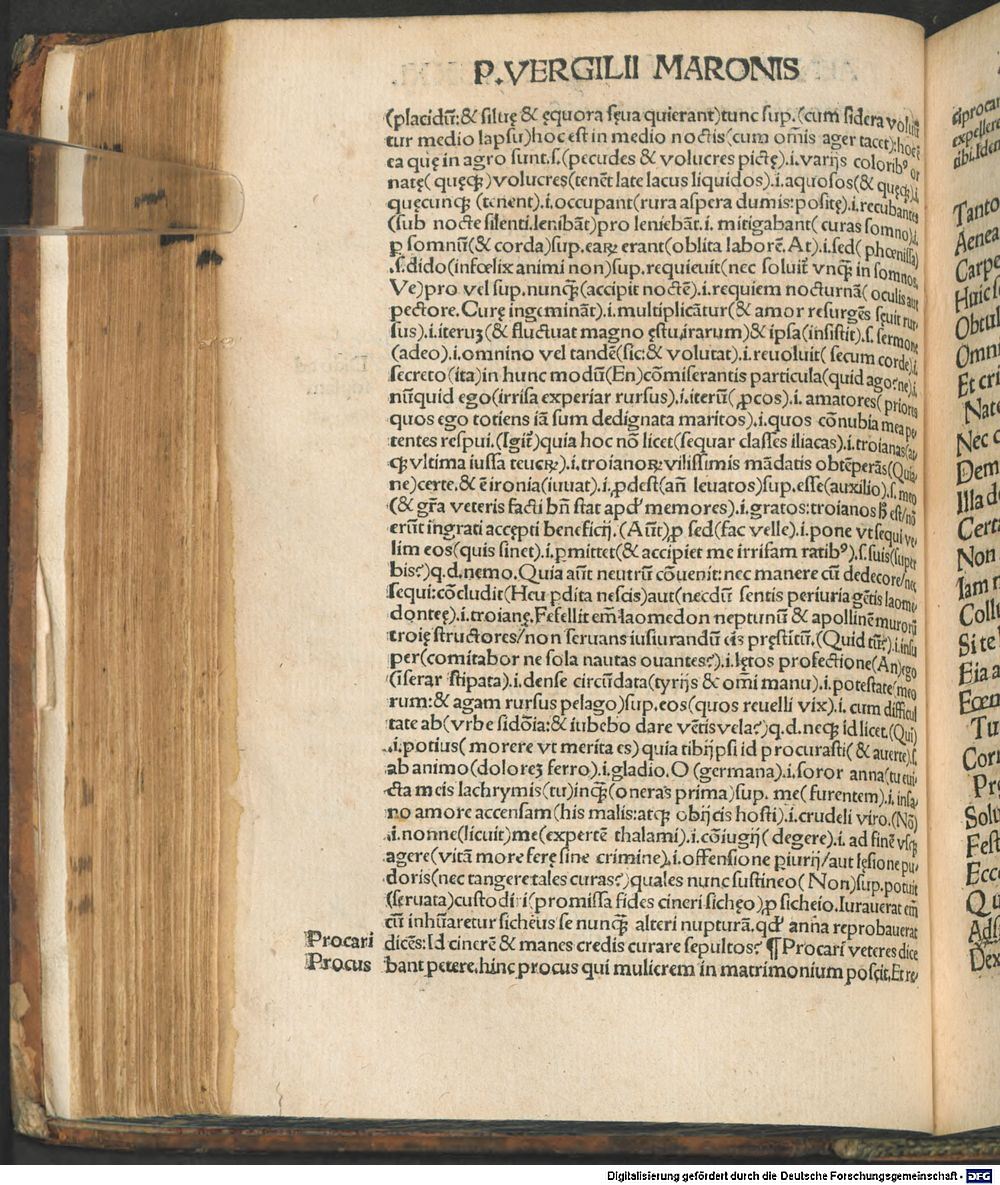 P.VERGILII MARONIS
(placidū:& siluę & ęquora sęua quierant)tunc sup.(cum sidera voluū
tur medio lapsu)hoc est in medio noctis(cum om̄is ager tacet):hoc ē
ea quę in agro sunt.s.(pecudes & volucres pictę).i.varijs coloribꝰ or
natę( quęcꝫ)volucres(tenēt late lacus liquidos).i.aquosos(& quęcꝫ).i.
quęcunqꝫ (tenent).i.occupant(rura aspera dumis:positę).i.recubantes
(sub nocte silenti.lenibāt)pro leniebāt.i. mitigabant( curas somno).i.
ꝑ somnū(& corda)sup.earꝝ erant(oblita laborē.At).i.sed( phœnissa)
.s.dido(infœlix animi non)sup.requieuit(nec soluit̄ vnqꝫ in somnos,
Ve)pro vel sup.nunqꝫ(accipit noctē).i.requiem nocturnā( oculis aut
pectore.Curę ingemināt).i.multiplicātur(& amor resurgēs sęuit rur-
sus).i.iteruꝫ(& fluctuat magno ęstu,irarum)& ipsa(insistit).s.sermone
(adeo).i.omnino vel tandē(sic:& volutat).i.reuoluit( secum corde).i.
secreto(ita)in hunc modū(En)cōmiserantis particula(quid ago?ne).i.
nūquid ego(irrisa experiar rursus).i.iterū( ꝓcos).i. amatores( priores
quos ego totiens iā sum dedignata maritos).i.quos cōnubia mea pe
tentes respui.(Igit̄)quia hoc nō licet(sequar classes iliacas).i.troianas(at
qꝫ vltima iussa teucrꝝ).i.troianoꝝ vilissimis mādatis obtēperās(Quia
ne)certe.& ē ironia(iuuat).i.ꝓdest(añ leuatos)sup.esse(auxilio).s.meo
(& grā veteris facti bn̄ stat apd' memores).i.gratos:troianos
erūt ingrati accepti beneficij.(Aūt)ꝓ sed(fac velle).i.pone vt sequi ve-
lim eos(quis sinet).i.ꝑmittet(& accipiet me irrisam ratibꝰ).s.suis(super
bis?)q.d.nemo.Quia aūt neutrū cōuenit:nec manere cū dedecore/nec
sequi:cōcludit(Heu ꝑdita nescis)aut(necdū sentis periuria gētis laome
donteę).i.troianę.Fefellit em̄ laomedon neptunū & apollinē murorū
troię structores/non seruans iusiurandū eis pręstitū.(Quid tū?).i.insu
per(comitabor ne sola nautas ouantes?).i.lętos profectione(An)ego
(īferar stipata).i.dense circūdata(tyrijs & om̄i manu).i.potestate/meo
rum:& agam rursus pelago)sup.eos(quos reuelli vix).i. cum difficul
tate ab(vrbe sidōia:& iubebo dare vētis vela?)q.d.neqꝫ id licet.(Quī)
.i.potius( morere vt merita es) quia tibijpsi id procurasti( & auerte).s.
ab animo(doloreꝫ ferro).i.gladio.O (germana).i.soror anna(tu eui-
cta meis lachrymis(tu)inqꝫ(oneras prima)sup. me( furentem).i.insa-
no amore accensam(his malis:atqꝫ obijcis hosti).i.crudeli viro.(Nō)
.i.nonne(licuit)me(expertē thalami).i.cōiugij( degere).i. ad finē vsqꝫ
agere(vitā more ferę sine crimine).i.offensione piurij/aut lęsione pu-
doris(nec tangere tales curas?)quales nunc sustineo( Non)sup.potuit
(seruata)custodiri(promissa fides cineri sichęo)ꝓ sicheio.Iurauerat em̄
cū inhūaretur sicheus se nunqꝫ alteri nupturā.qd' anna reprobauerat
Procari dicēs:Id cinerē & manes credis curare sepultos? ¶Procari veteres dice
Procus bant petere.hinc procus qui mulierem in matrimonium poscit.Et re-
ciprocar
expellere
tibi.Iden
Tanto
Aenea
Carpe
Huic s
Obtul
Omni
Et cri
Nate
Nec c
Dem
Illa d
Certa
Non
Iam m
Collu
Si te
Eia a
Fœm
Tu
Corr
Pr
Solu
Fest
Ecce
Qu
Adsi
Dex
Digitalisierung gefördert durch die Deutsche Forschungsgemeinschaft - DFG